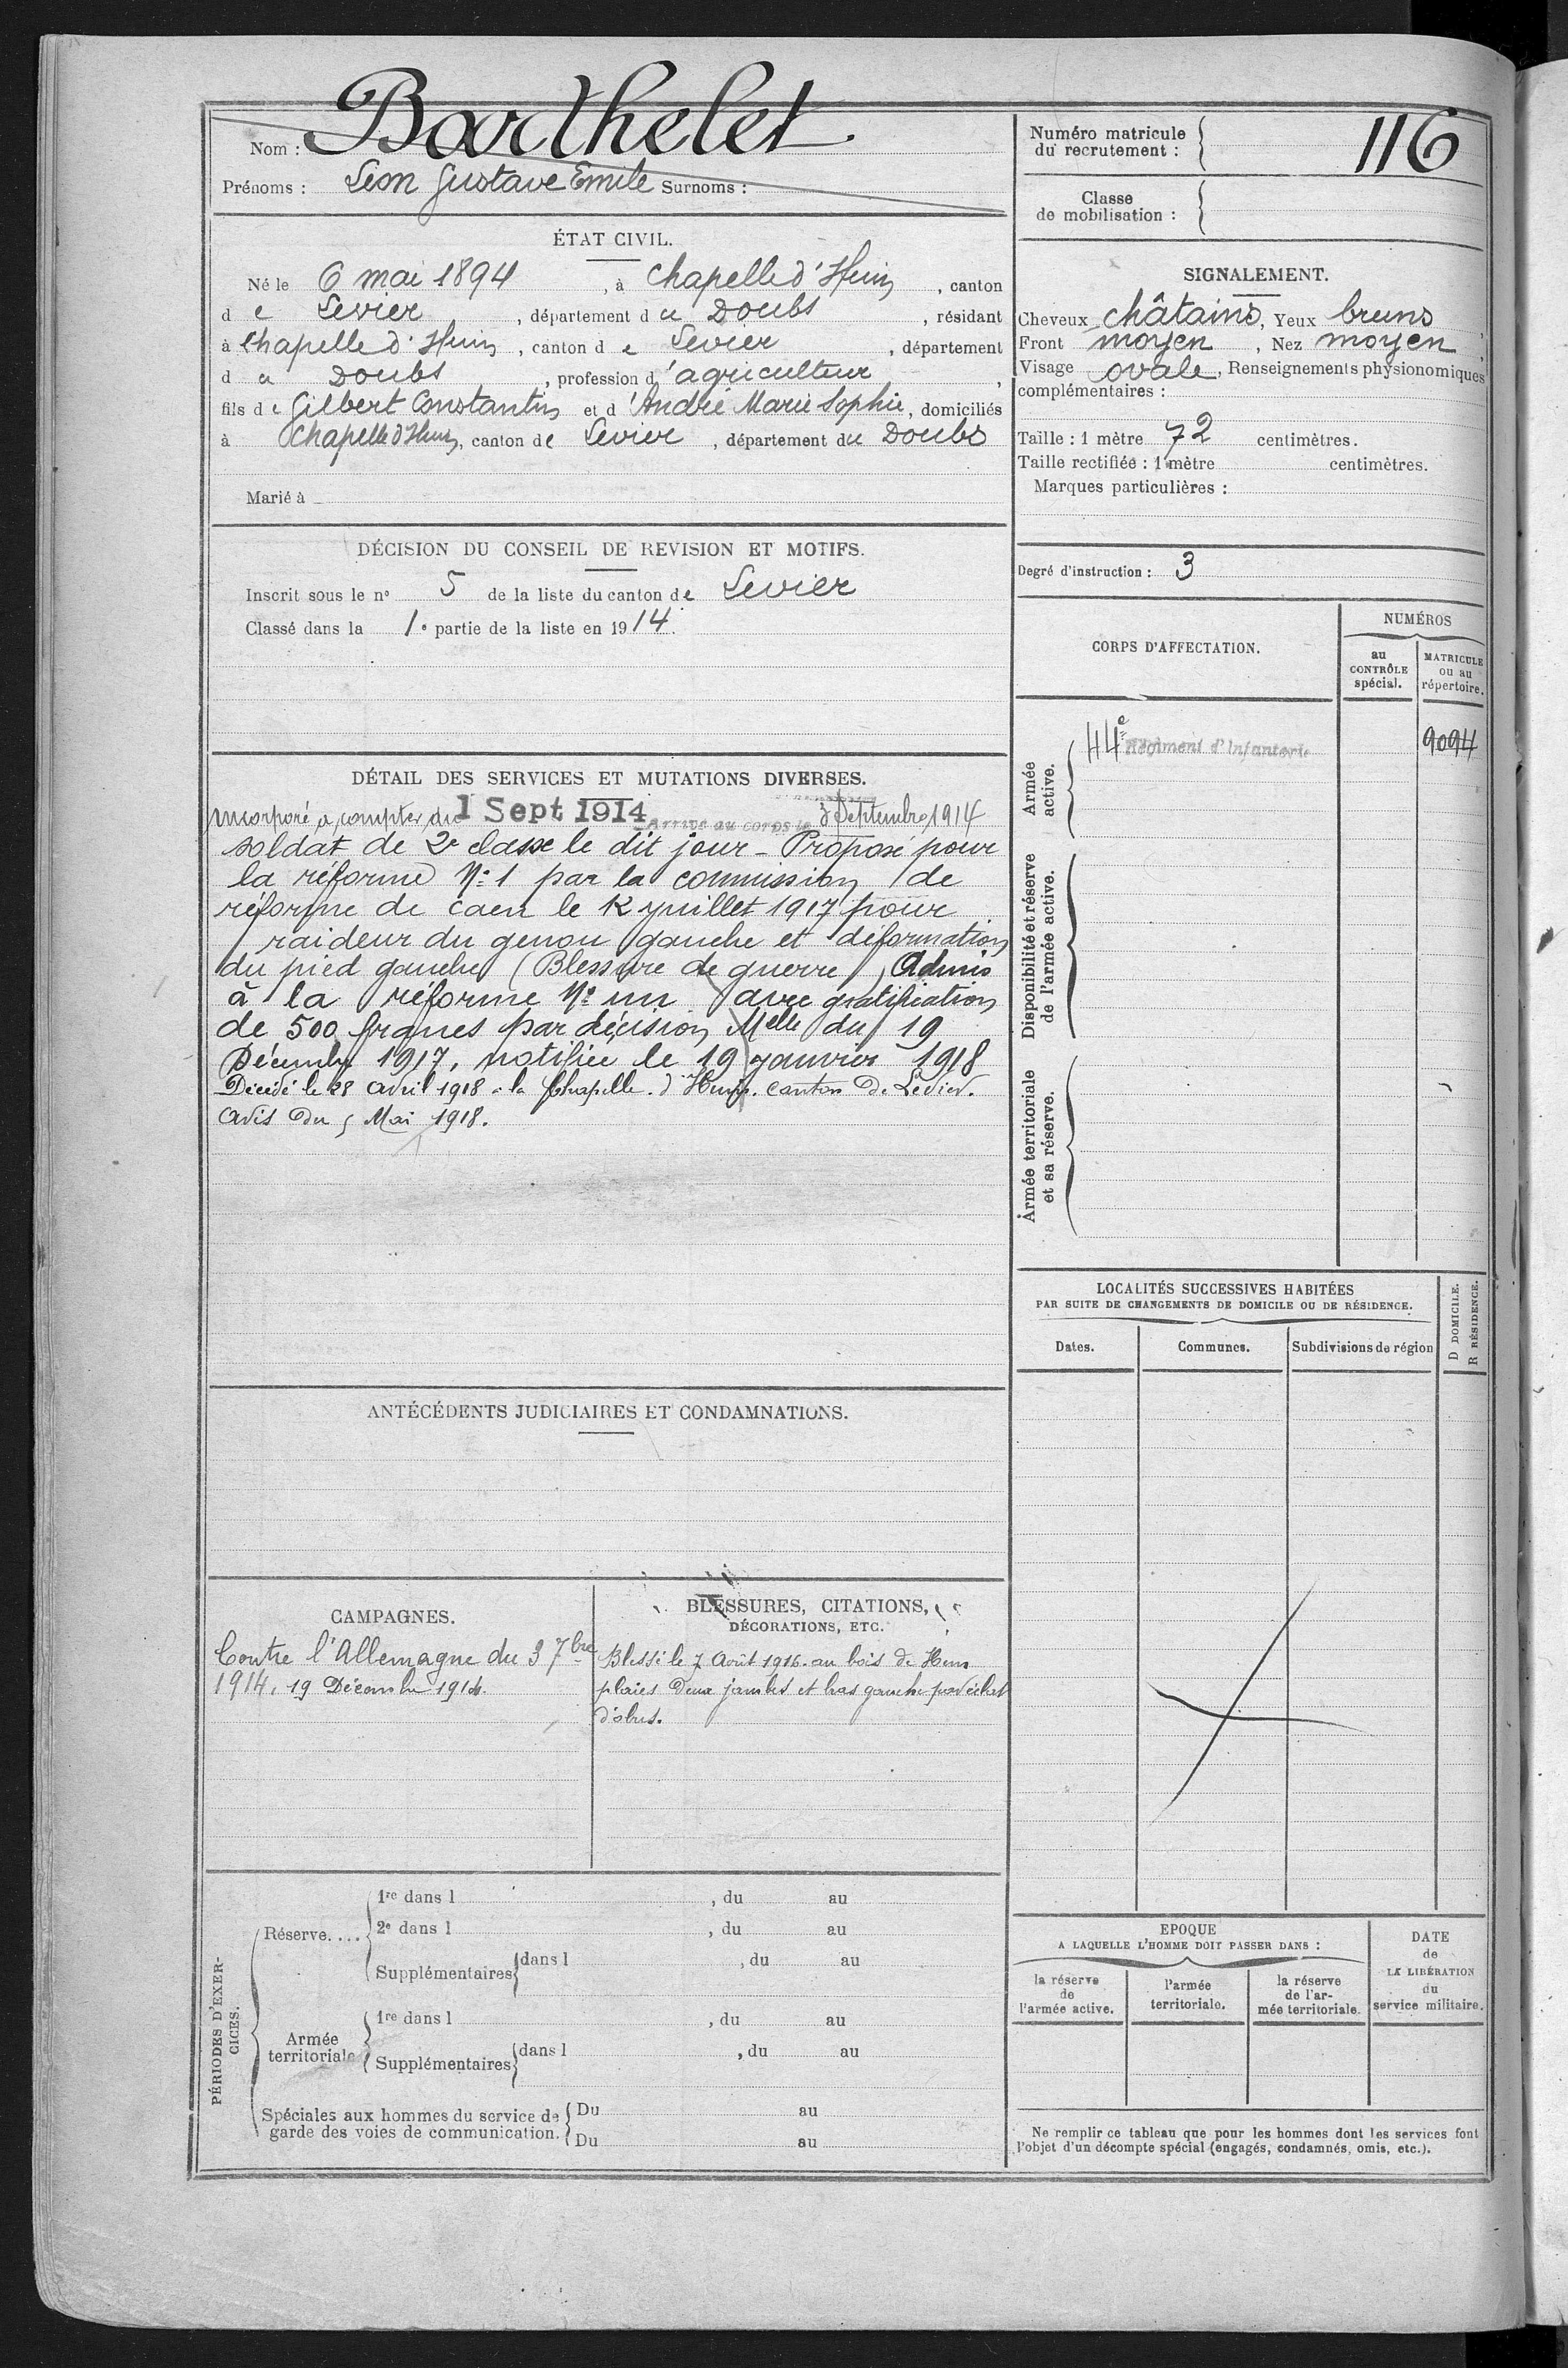 Nom : Barthelet
Prénoms : Léon Gustave Emile Surnoms :
ÉTAT CIVIL.
Né le 6 mai 1894, à Chapelle d'Huin, canton
de Levier, département du Doubs, résidant
à Chapelle d'Huin, canton de Levier, département
du Doubs, profession d'agriculteur,
fils de Gilbert Constantin et d'André Marie Sophie, domiciliés
à Chapelle d'Huin, canton de Levier, département du Doubs
Marié à
DÉCISION DU CONSEIL DE REVISION ET MOTIFS.
Inscrit sous le n° 5 de la liste du canton de Levier
Classé dans la 1e partie de la liste en 1914.
DÉTAIL DES SERVICES ET MUTATIONS DIVERSES.
Incorporé à compter du 1 Sept 1914 Arrivé au corps le 3 Septembre 1914
soldat de 2e classe le dit jour - Proposé pour
la réforme N° 1 par la commission de
réforme de Caen le 12 juillet 1917 pour
raideur du genou gauche et déformation
du pied gauche (Blessure de guerre) Admis
à la réforme N° un avec gratification
de 500 francs par décision Melle du 19
Décembre 1917, notifiée le 19 janvier 1918
Décédé le 28 avril 1918 à la Chapelle d'Huin. canton de Levier.
Avis du 5 Mai 1918.
ANTÉCÉDENTS JUDICIAIRES ET CONDAMNATIONS.
CAMPAGNES.
Contre l'Allemagne du 3 7bre
1914. 19 Décembre 1917.
BLESSURES, CITATIONS,
DÉCORATIONS, ETC.
Blessé le 7 Août 1916. au bois de Hem
plaies deux jambes et bras gauche par éclat
d'obus.
PÉRIODES D'EXERCICES.
Réserve....
1re dans l , du au
2e dans l , du au
Supplémentaires dans l , du au
Armée territoriale
1re dans l , du au
Supplémentaires dans l , du au
Spéciales aux hommes du service de
garde des voies de communication.
Du au
Du au
Numéro matricule
du recrutement : 116
Classe
de mobilisation :
SIGNALEMENT.
Cheveux châtains, Yeux bruns
Front moyen, Nez moyen
Visage ovale, Renseignements physionomiques
complémentaires :
Taille : 1 mètre 72 centimètres.
Taille rectifiée : 1 mètre centimètres.
Marques particulières :
Degré d'instruction : 3
CORPS D'AFFECTATION.
NUMÉROS
au
CONTRÔLE
spécial.
MATRICULE
ou au
répertoire.
Armée
active.
44e Régiment d'Infanterie 9094
Disponibilité et réserve
de l'armée active.
Armée territoriale
et sa réserve.
LOCALITÉS SUCCESSIVES HABITÉES
PAR SUITE DE CHANGEMENTS DE DOMICILE OU DE RÉSIDENCE.
D DOMICILE.
R RÉSIDENCE.
Dates. Communes. Subdivisions de région
EPOQUE
A LAQUELLE L'HOMME DOIT PASSER DANS :
la réserve
de
l'armée active.
l'armée
territoriale.
la réserve
de l'ar-
mée territoriale.
DATE
de
LA LIBÉRATION
du
service militaire.
Ne remplir ce tableau que pour les hommes dont les services font
l'objet d'un décompte spécial (engagés, condamnés, omis, etc.).